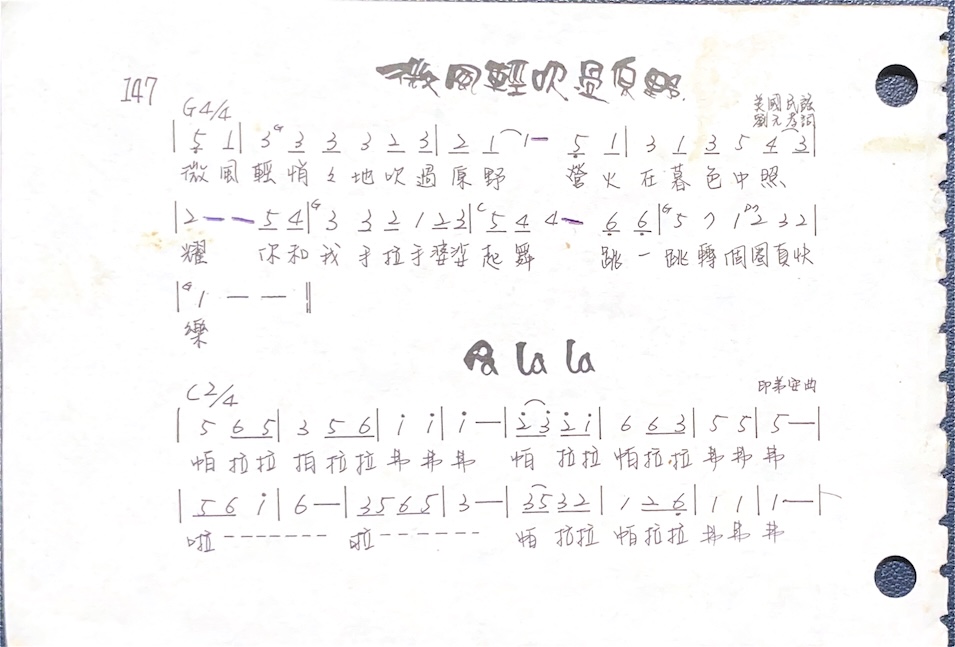 147
微風輕吹過原野
美國民謠
劉元孝詞
G4/4
| 5 1 | 3 G 3 3 3 2 3 | 2 1 1 — 5 1 | 3 1 3 5 4 3 |
微風輕悄々地吹過原野 螢火在暮色中照
| 2 — — 5 4 | G 3 3 2 1 2 3 | C 5 4 4 — 6 6 | G 5 7 1 D7 2 3 2 |
耀 你和我手拉手婆娑起舞 跳一跳轉個圈真快
| G 1 — — ‖
樂
Pa la la
C2/4
印弟安曲
| 5 6 5 | 3 5 6 | i i | i — | 2 3 2 i | 6 6 3 | 5 5 | 5 — |
帕拉拉 拍拉拉弗弗弗 帕拉拉 帕拉拉弗弗弗
| 5 6 i | 6 — | 3 5 6 5 | 3 — | 3 5 3 2 | 1 2 6 | 1 1 | 1 — |
啦 ------- 啦 ------ 帕拉拉 帕拉拉弗弗弗